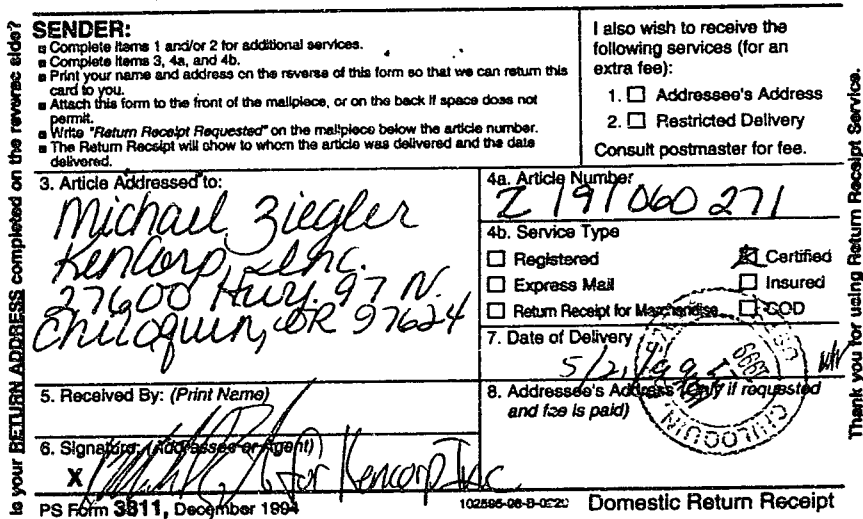 Is your RETURN ADDRESS completed on the reverse side?
SENDER:
Complete items 1 and/or 2 for additional services.
Complete items 3, 4a, and 4b.
Print your name and address on the reverse of this form so that we can return this
card to you.
Attach this form to the front of the mailpiece, or on the back if space does not
permit.
Write "Return Receipt Requested" on the mailpiece below the article number.
The Return Receipt will show to whom the article was delivered and the date
delivered.
I also wish to receive the
following services (for an
extra fee):
1. Addressee's Address
2. Restricted Delivery
Consult postmaster for fee.
3. Article Addressed to:
Michael Ziegler
KenCorp Inc.
27600 Hwy. 97 N.
Chiloquin, OR 97624
4a. Article Number
Z 191 060 271
4b. Service Type
Registered Certified
Express Mail Insured
Return Receipt for Merchandise COD
7. Date of Delivery
5/2
CHILOQUIN
1999
5. Received By: (Print Name)
8. Addressee's Address (Only if requested
and fee is paid)
6. Signature: (Addressee or Agent)
X for Kencorp Inc.
PS Form 3811, December 1994
Domestic Return Receipt
Thank you for using Return Receipt Service.